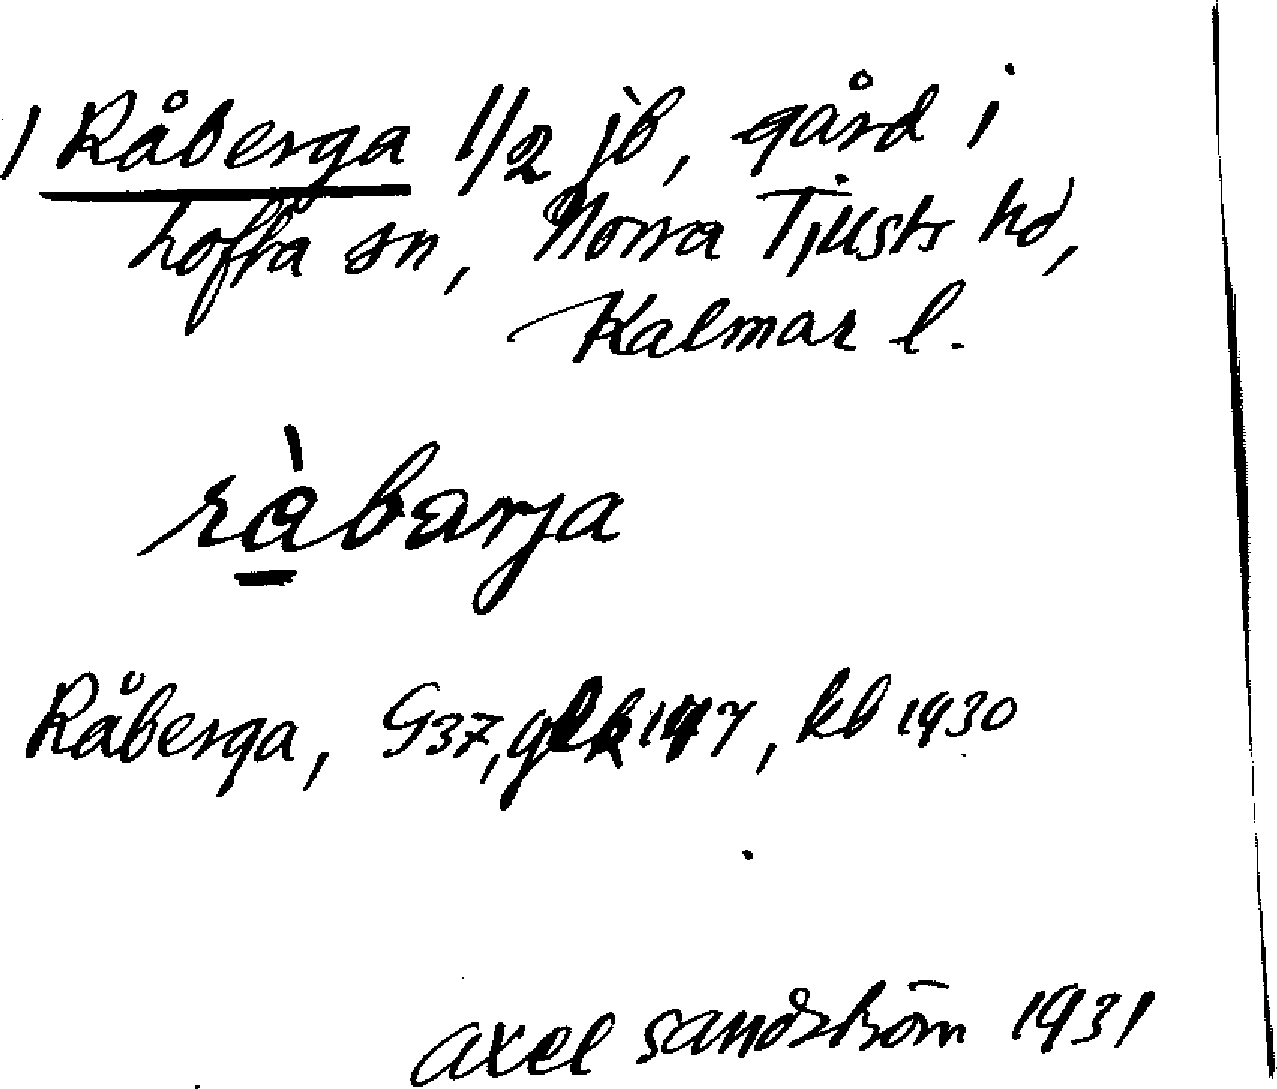 1 Råberga 1/2 jb, gård i
Lofta sn, Norra Tjusts hd,
Kalmar l.
rà̲barja
Råberga, G37, glk 1917, kb 1930
Axel Sandström 1931